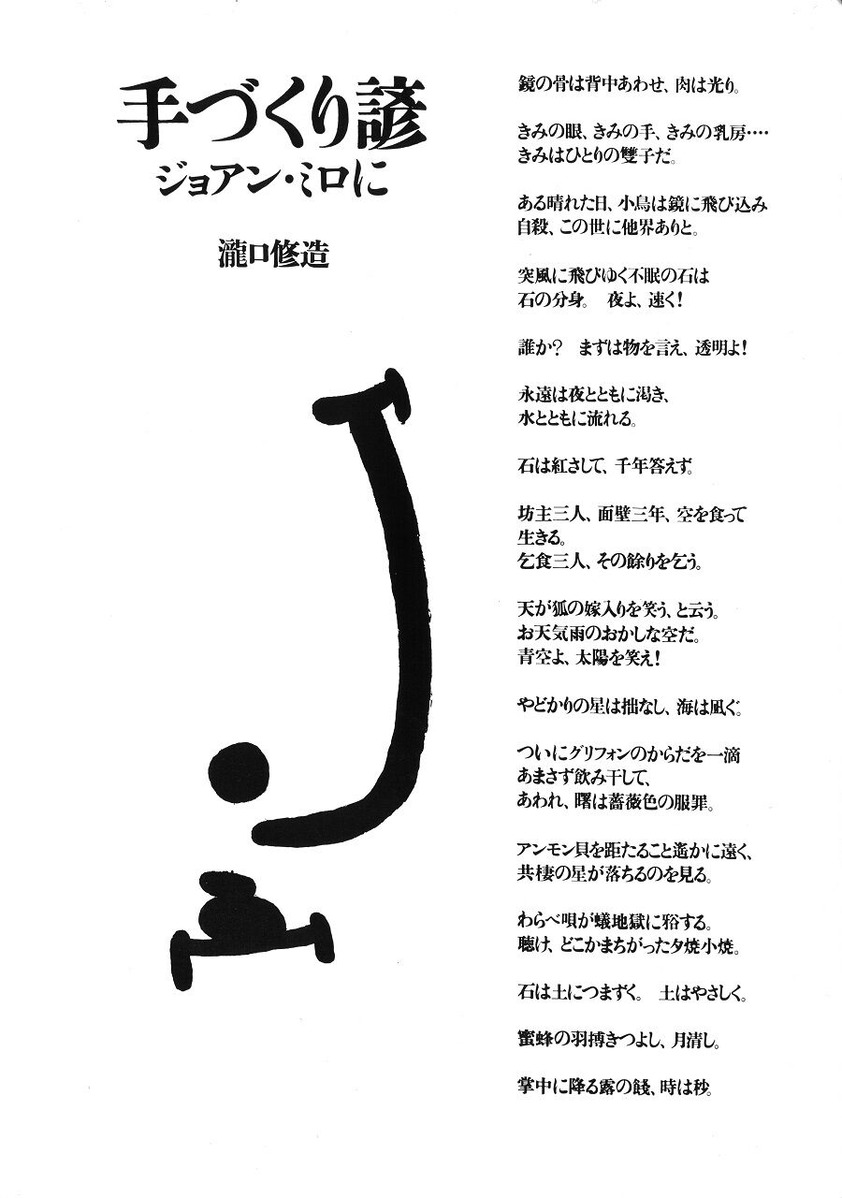 手づくり諺
ジョアン・ミロに
瀧口修造
鏡の骨は背中あわせ、肉は光り。
きみの眼、きみの手、きみの乳房‥‥
きみはひとりの雙子だ。
ある晴れた日、小鳥は鏡に飛び込み
自殺、この世に他界ありと。
突風に飛びゆく不眠の石は
石の分身。　夜よ、速く！
誰か？　まずは物を言え、透明よ！
永遠は夜とともに渇き、
水とともに流れる。
石は紅さして、千年答えず。
坊主三人、面壁三年、空を食って
生きる。
乞食三人、その餘りを乞う。
天が狐の嫁入りを笑う、と云う。
お天気雨のおかしな空だ。
青空よ、太陽を笑え！
やどかりの星は拙なし、海は凪ぐ。
ついにグリフォンのからだを一滴
あまさず飲み干して、
あわれ、曙は薔薇色の服罪。
アンモン貝を距たること遙かに遠く、
共棲の星が落ちるのを見る。
わらべ唄が蟻地獄に谺する。
聴け、どこかまちがった夕焼小焼。
石は土につまずく。　土はやさしく。
蜜蜂の羽搏きつよし、月清し。
掌中に降る露の餞、時は秒。